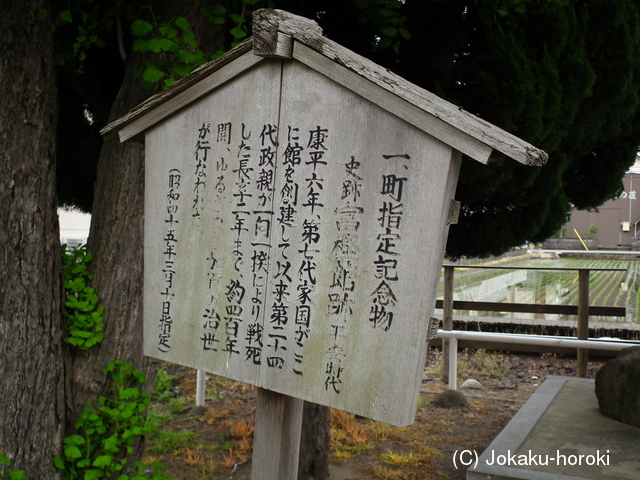 一、町指定記念物
史跡 宮崎館跡 平安時代
康平六年、第七代家国がここ
に館を創建して以来第二十四
代政親が一向一揆により戦死
した長享二年まで、約四百年
間、ゆる 治世
が行なわれ
(昭和四十五年三月十日指定)
(C) Jokaku-horoki
の荘